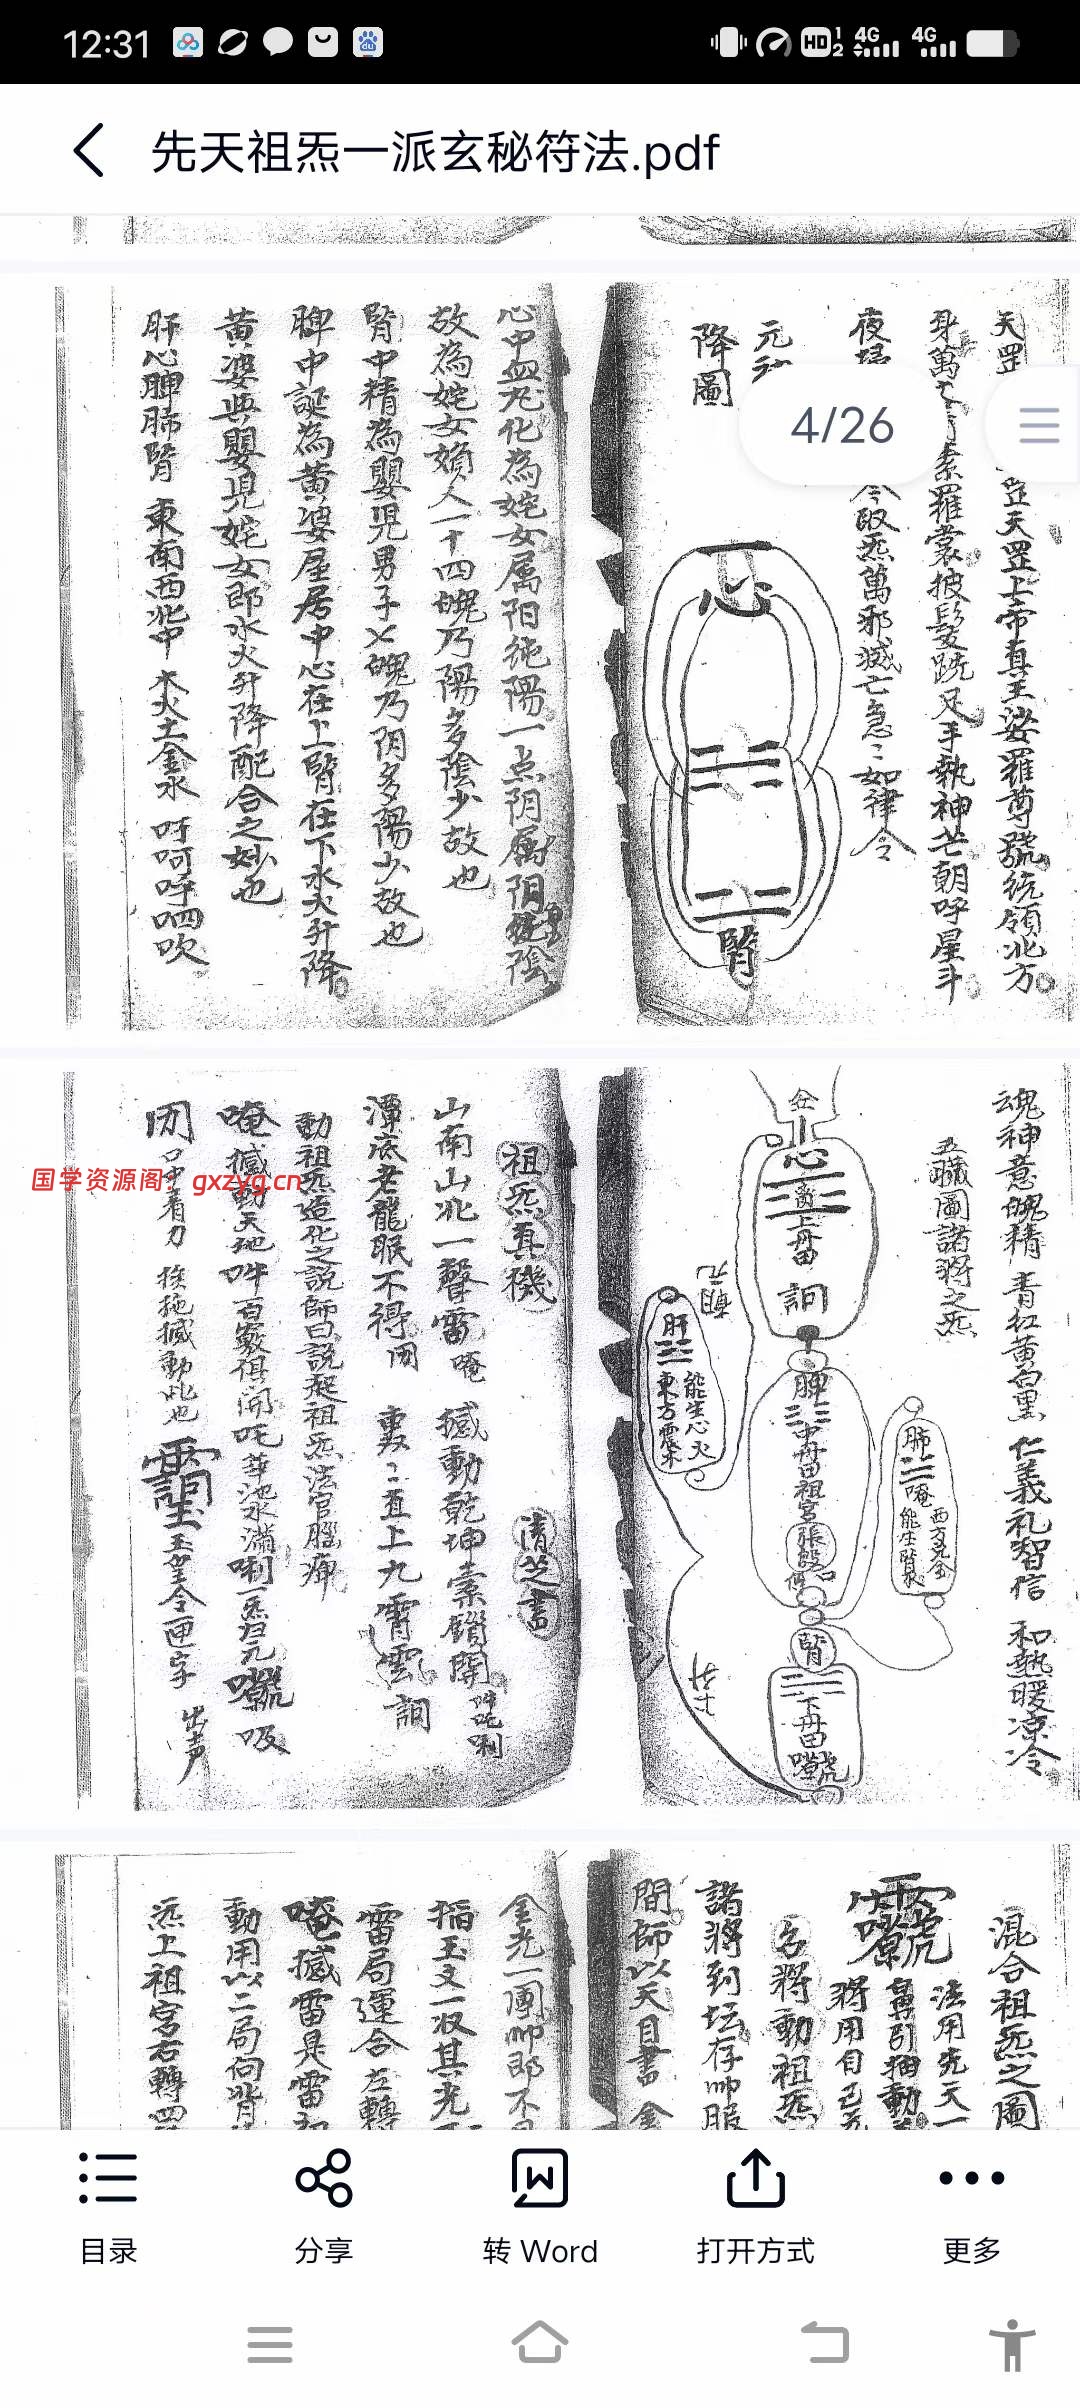 12:31
HD 1 2 4G 4G
先天祖炁一派玄秘符法.pdf
4/26
天罡
罡天罡上帝真王娑羅尊號統領北方
身萬
素羅裳披髮跣足手執神芒朝呼星斗
夜
令取炁萬邪滅亡急々如律令
元
降圖
心
腎
心中血尤化為姹女属阳純陽一点阴属阴純陰
故為姹女嬪人一十四魄乃陽多陰少故也
腎中精為嬰児男子乂魄乃阴多陽少故也
脾中誕為黄婆屋居中心在上腎在下水火升降
黄婆與嬰児姹女郎水火升降配合之妙也
肝心脾肺腎 東南西北中 木火土金水 吁呵呼呬吹
魂神意魄精 青紅黄白黒 仁義礼智信 和熱暖凉冷
五臟圖諸將之炁
心
離
上丹田
詗
肝
能生心火
東方震木
脾
中丹田祖宮
肺
唵
西方兌金
能生腎水
腎
下丹田
祖炁真機
清芝書
山南山北一聲雷 唵 撼動乾坤索鎖開 吽吒唎
潭底老龍眠不得 囝 轟々直上九霄雲 詗
動祖炁造化之説師曰説起祖炁法官腦痛
唵 撼動天地 吽 百竅俱開 吒 華池水滿 唎 一炁归元 吸
口中着力 挨拖撼動此也 玉皇令匣字 出声
国学资源阁：gxzyg.cn
混合祖炁之圖
法用先天一
舅引抽動
將用自己
名將動祖炁
諸將到坛存帅服
間師以天目書金
金光一團帅即不
稲玉文一収其光
雷局運合左轉
唵撼雷是雷
動用以二局向背
炁上祖宮右轉四
目录
分享
转 Word
打开方式
更多